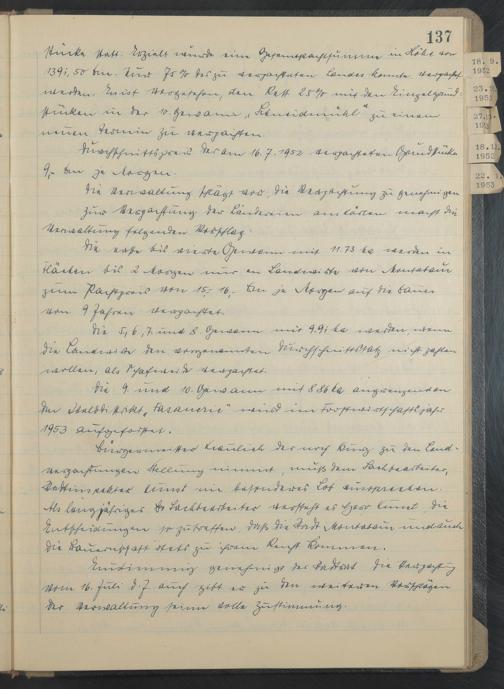 137
stücke statt. Erzielt wurde eine Gesamtpachtsumme in Höhe von
1391,50 Dm. Nur 75% des zu verpachteten Landes konnte verpachtet
werden. Es ist vorgesehen, den Rest 25% mit den Einzelgrund-
stücken in der 10. Gewann „Schneidmühl" zu einem
neuen Termin zu verpachten.
Durchschnittspreis der am 16.7.1952 verpachteten Grundstücke
9,- Dm je Morgen.
Die Verwaltung schlägt vor, die Verpachtung zu genehmigen
Zur Verpachtung der Ländereien am macht die
Verwaltung folgenden Vorschlag.
Die erste bis vierte Gewann mit 11.73 ha werden in
Flächen bis 2 Morgen nur an Landwirte von Montabaur
zum Pachtpreis von 15,- 16,- Dm je Morgen auf die Dauer
von 9 Jahren verpachtet.
Die 5, 6, 7. und 8. Gewann mit 9.91 ha werden, wenn
die Landwirte den vorgenannten Durchschnittssatz nicht zahlen
wollen, als Schafweide verpachtet.
Die 9. und 10. Gewann mit 8.86 ha angrenzend an
den Walddistrikt „Fasanerie" wird im Forstwirtschaftsjahr
1953 aufgeforstet.
Bürgermeister Kraulich der noch kurz zu den Land-
verpachtungen Stellung nimmt, muß dem Sachbearbeiter,
Stadtinspektor ein besonderes Lob aussprechen.
Als langjähriger Sachbearbeiter versteht es Herr die
Entscheidungen so zu treffen, daß die Stadt Montabaur und auch
die Bauernschaft stets zu ihrem Recht kommen.
Einstimmig genehmigt der Stadtrat die Verpachtung
vom 16. Juli d.J. auch gibt er zu den weiteren Vorschlägen
der Verwaltung seine volle Zustimmung.
18. 9.
1952
23.
195
27.
19
18.11.
1952
22. 1.
1953